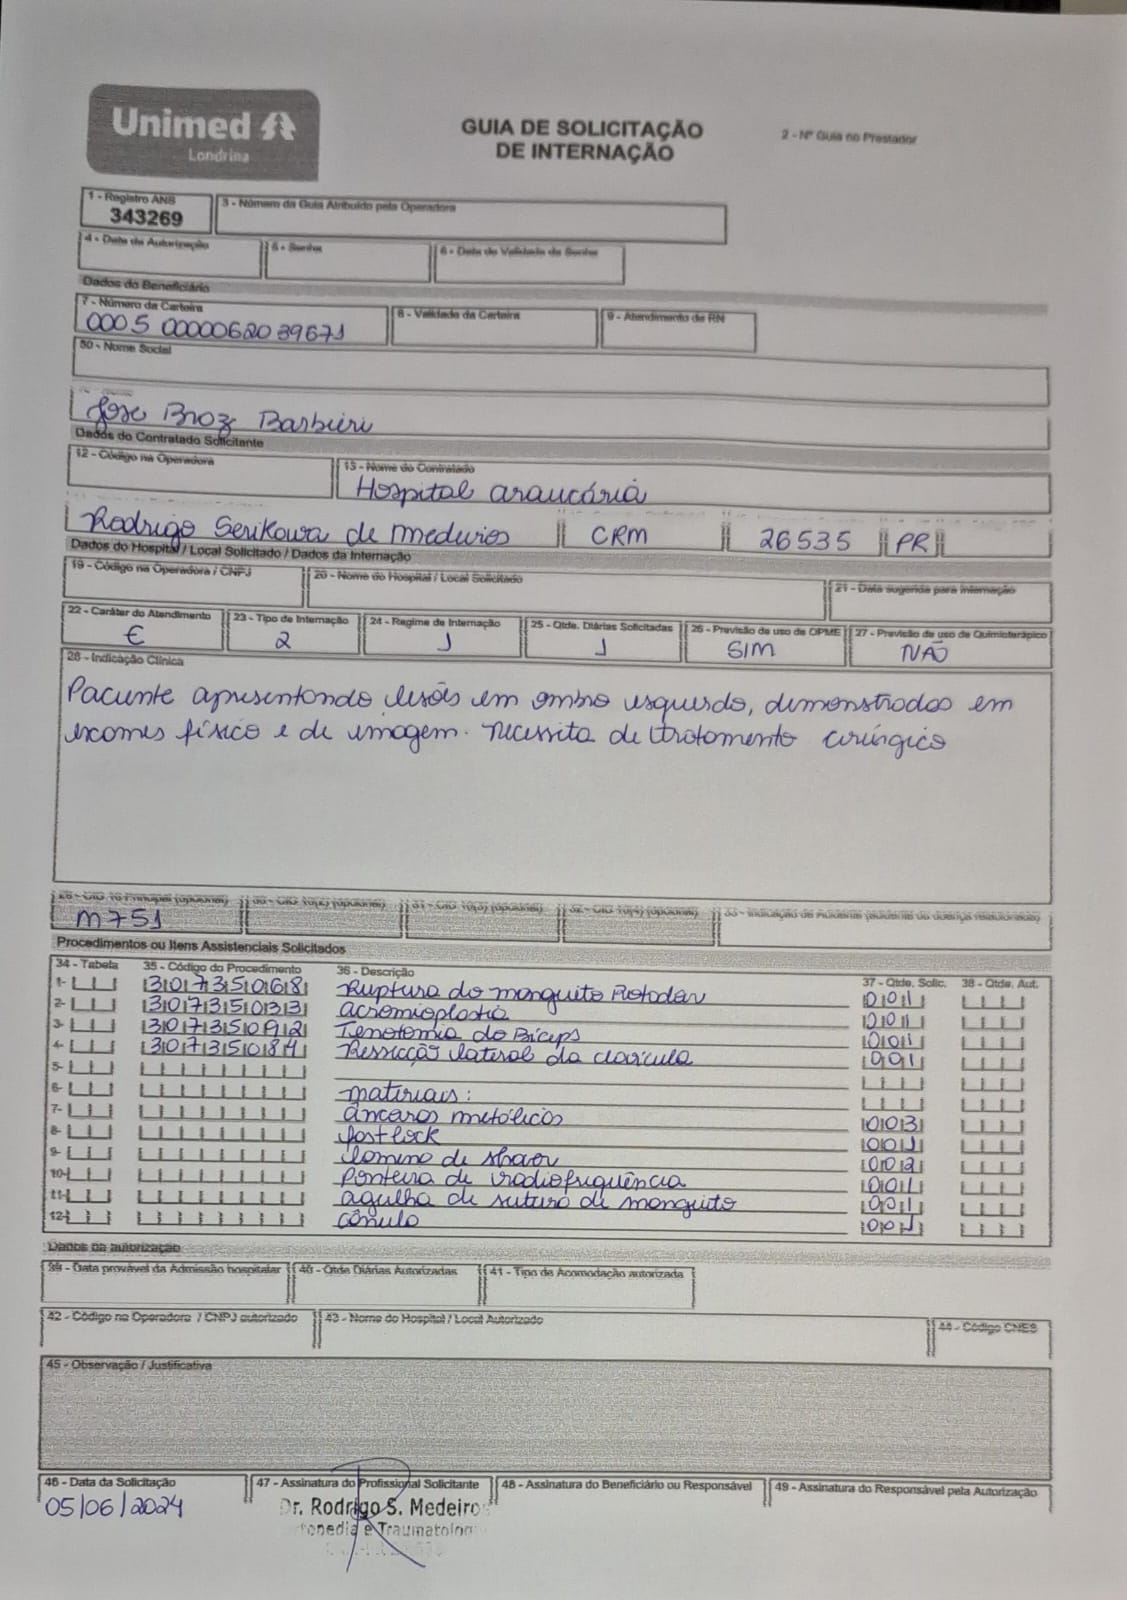 Unimed
Londrina
GUIA DE SOLICITAÇÃO
DE INTERNAÇÃO
2 - Nº Guia no Prestador
1 - Registro ANS
343269
3 - Número da Guia Atribuído pela Operadora
4 - Data da Autorização
5 - Senha
6 - Data de Validade da Senha
Dados do Beneficiário
7 - Número da Carteira
0005 0000062039671
8 - Validade da Carteira
9 - Atendimento de RN
50 - Nome Social
Jose Broz Barbieri
Dados do Contratado Solicitante
12 - Código na Operadora
13 - Nome do Contratado
Hospital araucária
Rodrigo Serikawa de medeiros CRM 26535 PR
Dados do Hospital / Local Solicitado / Dados da Internação
19 - Código na Operadora / CNPJ
20 - Nome do Hospital / Local Solicitado
21 - Data sugerida para internação
22 - Caráter do Atendimento
E
23 - Tipo de Internação
2
24 - Regime de Internação
1
25 - Qtde. Diárias Solicitadas
1
26 - Previsão de uso de OPME
SIM
27 - Previsão de uso de Quimioterápico
NÃO
28 - Indicação Clínica
Paciente apresentando lesões em ombro esquerdo, demonstradas em
exames físico e de imagem. necessita de tratamento cirúrgico
29 - CID 10 Principal (opcional)
M751
30 - CID 10(2) (opcional)
31 - CID 10(3) (opcional)
32 - CID 10(4) (opcional)
33 - Indicação de Acidente (acidente ou doença relacionada)
Procedimentos ou Itens Assistenciais Solicitados
34 - Tabela 35 - Código do Procedimento 36 - Descrição 37 - Qtde. Solic. 38 - Qtde. Aut.
1- 30735068 Ruptura do manguito Rotador 001
2- 30735033 acromioplastia 001
3- 30735092 Tenotomia do Bíceps 001
4- 30735084 Ressecção lateral da clavícula 001
5-
6- materiais:
7- âncoras metálicas 003
8- fast lock 001
9- lâmina de shaver 002
10- ponteira de radiofrequência 001
11- agulha de sutura de manguito 001
12- cânula 001
Dados da autorização
39 - Data provável da Admissão hospitalar
40 - Qtde Diárias Autorizadas
41 - Tipo de Acomodação autorizada
42 - Código na Operadora / CNPJ autorizado
43 - Nome do Hospital / Local Autorizado
44 - Código CNES
45 - Observação / Justificativa
46 - Data da Solicitação
05/06/2024
47 - Assinatura do Profissional Solicitante
Dr. Rodrigo S. Medeiros
topedia e Traumatolog
48 - Assinatura do Beneficiário ou Responsável
49 - Assinatura do Responsável pela Autorização